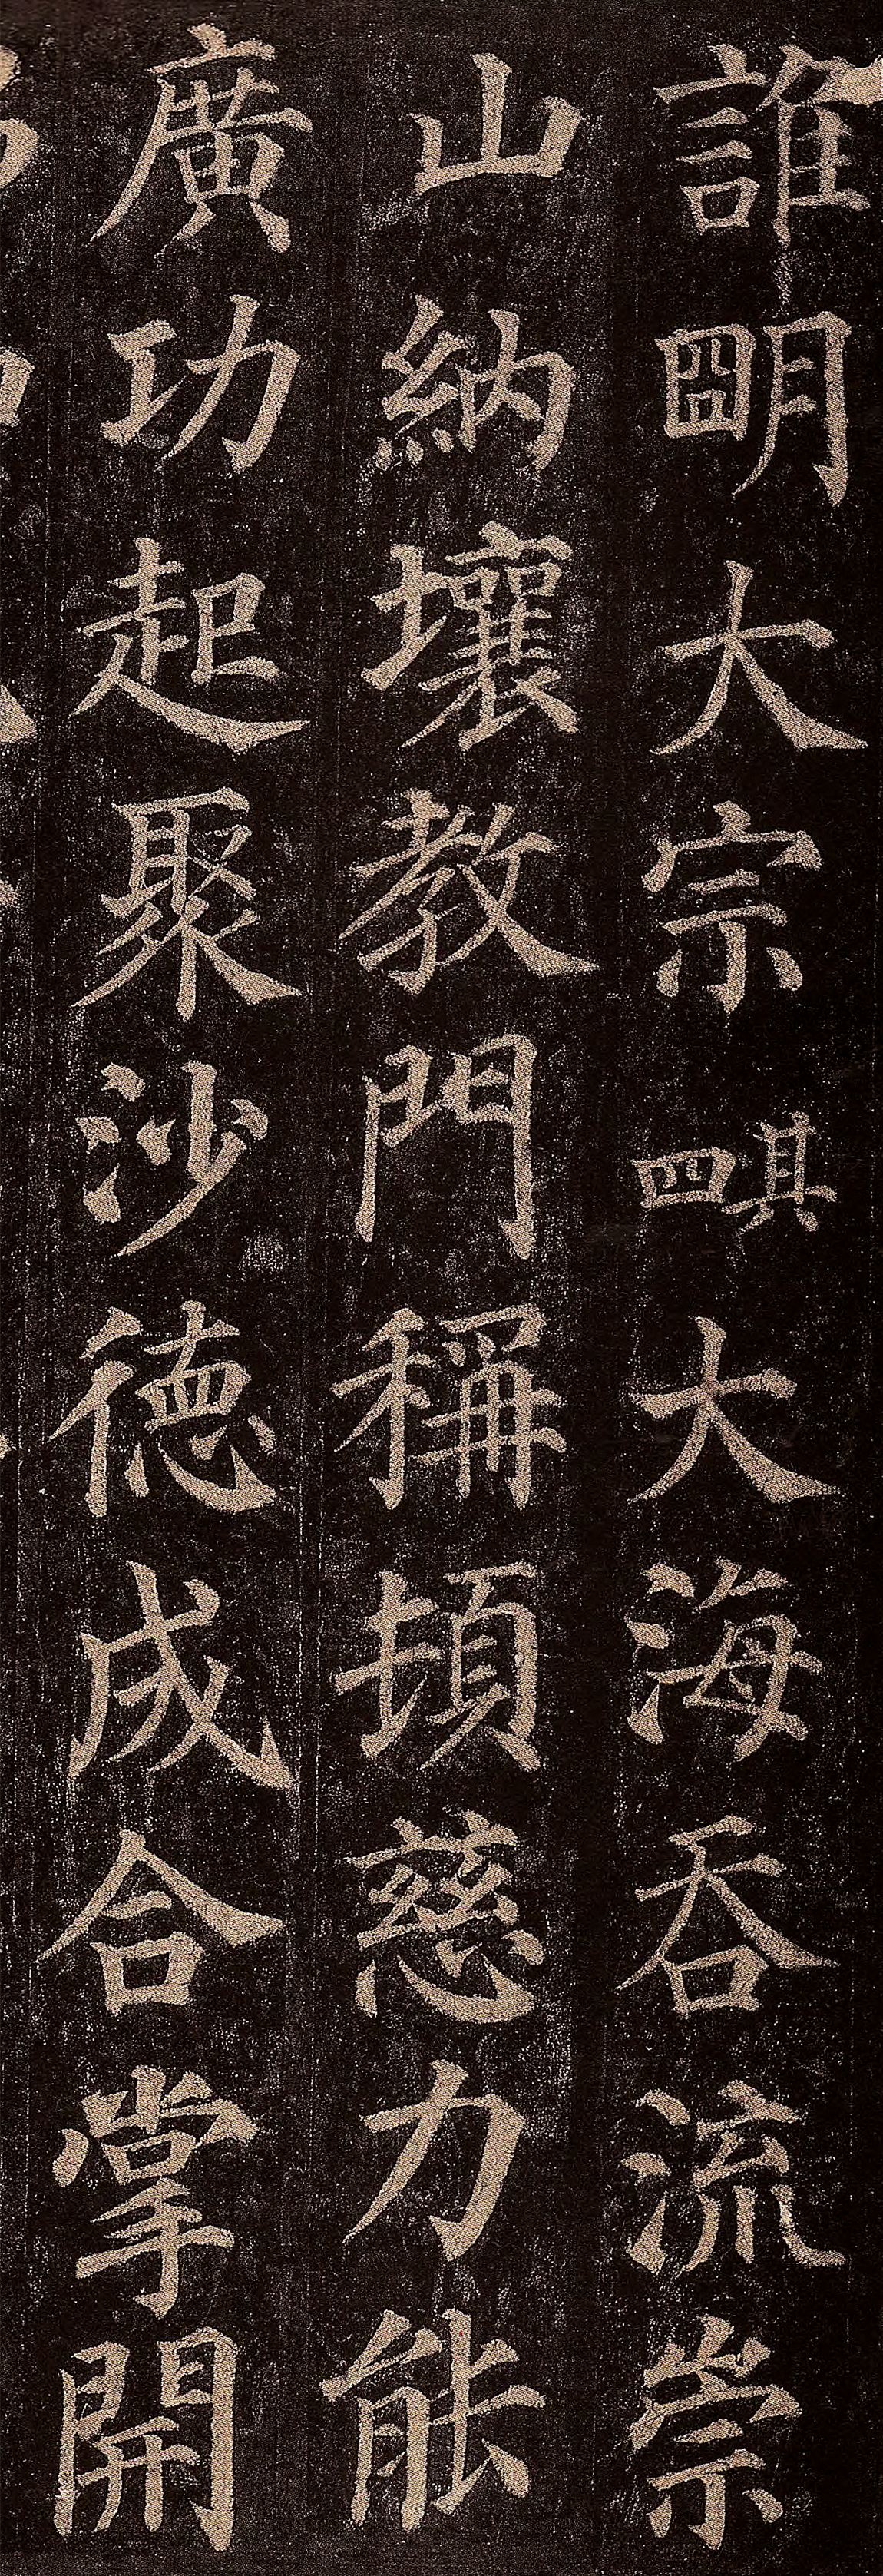 誰明大宗其四大海吞流崇
山納壤教門稱頓慈力能
廣功起聚沙德成合掌開